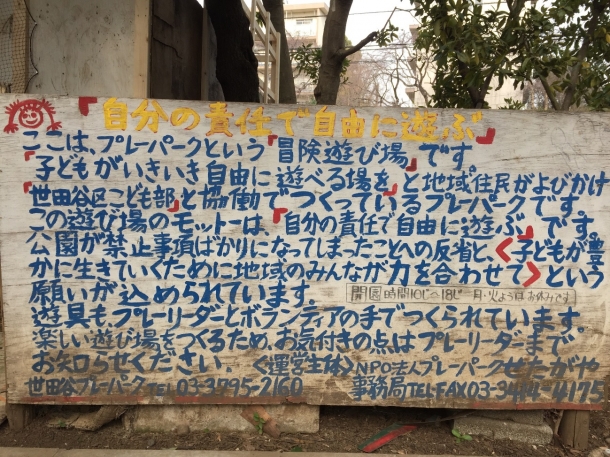 『自分の責任で自由に遊ぶ』
ここは、プレーパークという『冒険遊び場』です
『子どもがいきいき自由に遊べる場を』と地域住民がよびかけ
『世田谷区こども部』と協働でつくっているプレーパークです。
この遊び場のモットーは、『自分の責任で自由に遊ぶ』です。
公園が禁止事項ばかりになってしまったことへの反省と、〈子どもが豊
かに生きていくために地域のみんなが力を合わせて〉という
願いが込められています。
開園時間10じ〜18じ 月・火よう日お休みです
遊具もプレーリーダーとボランティアの手でつくられています。
楽しい遊び場をつくるため、お気付きの点はプレーリーダーまで。
お知らせください. 〈運営主体〉NPO法人プレーパークせたがや
世田谷プレーパークTEL 03-3795-2160 事務局TEL・FAX03-3414-4175